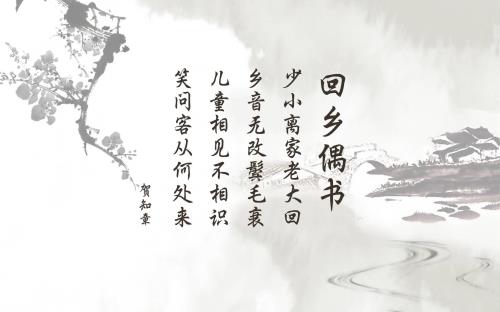 回乡偶书
少小离家老大回
乡音无改鬓毛衰
儿童相见不相识
笑问客从何处来
贺知章